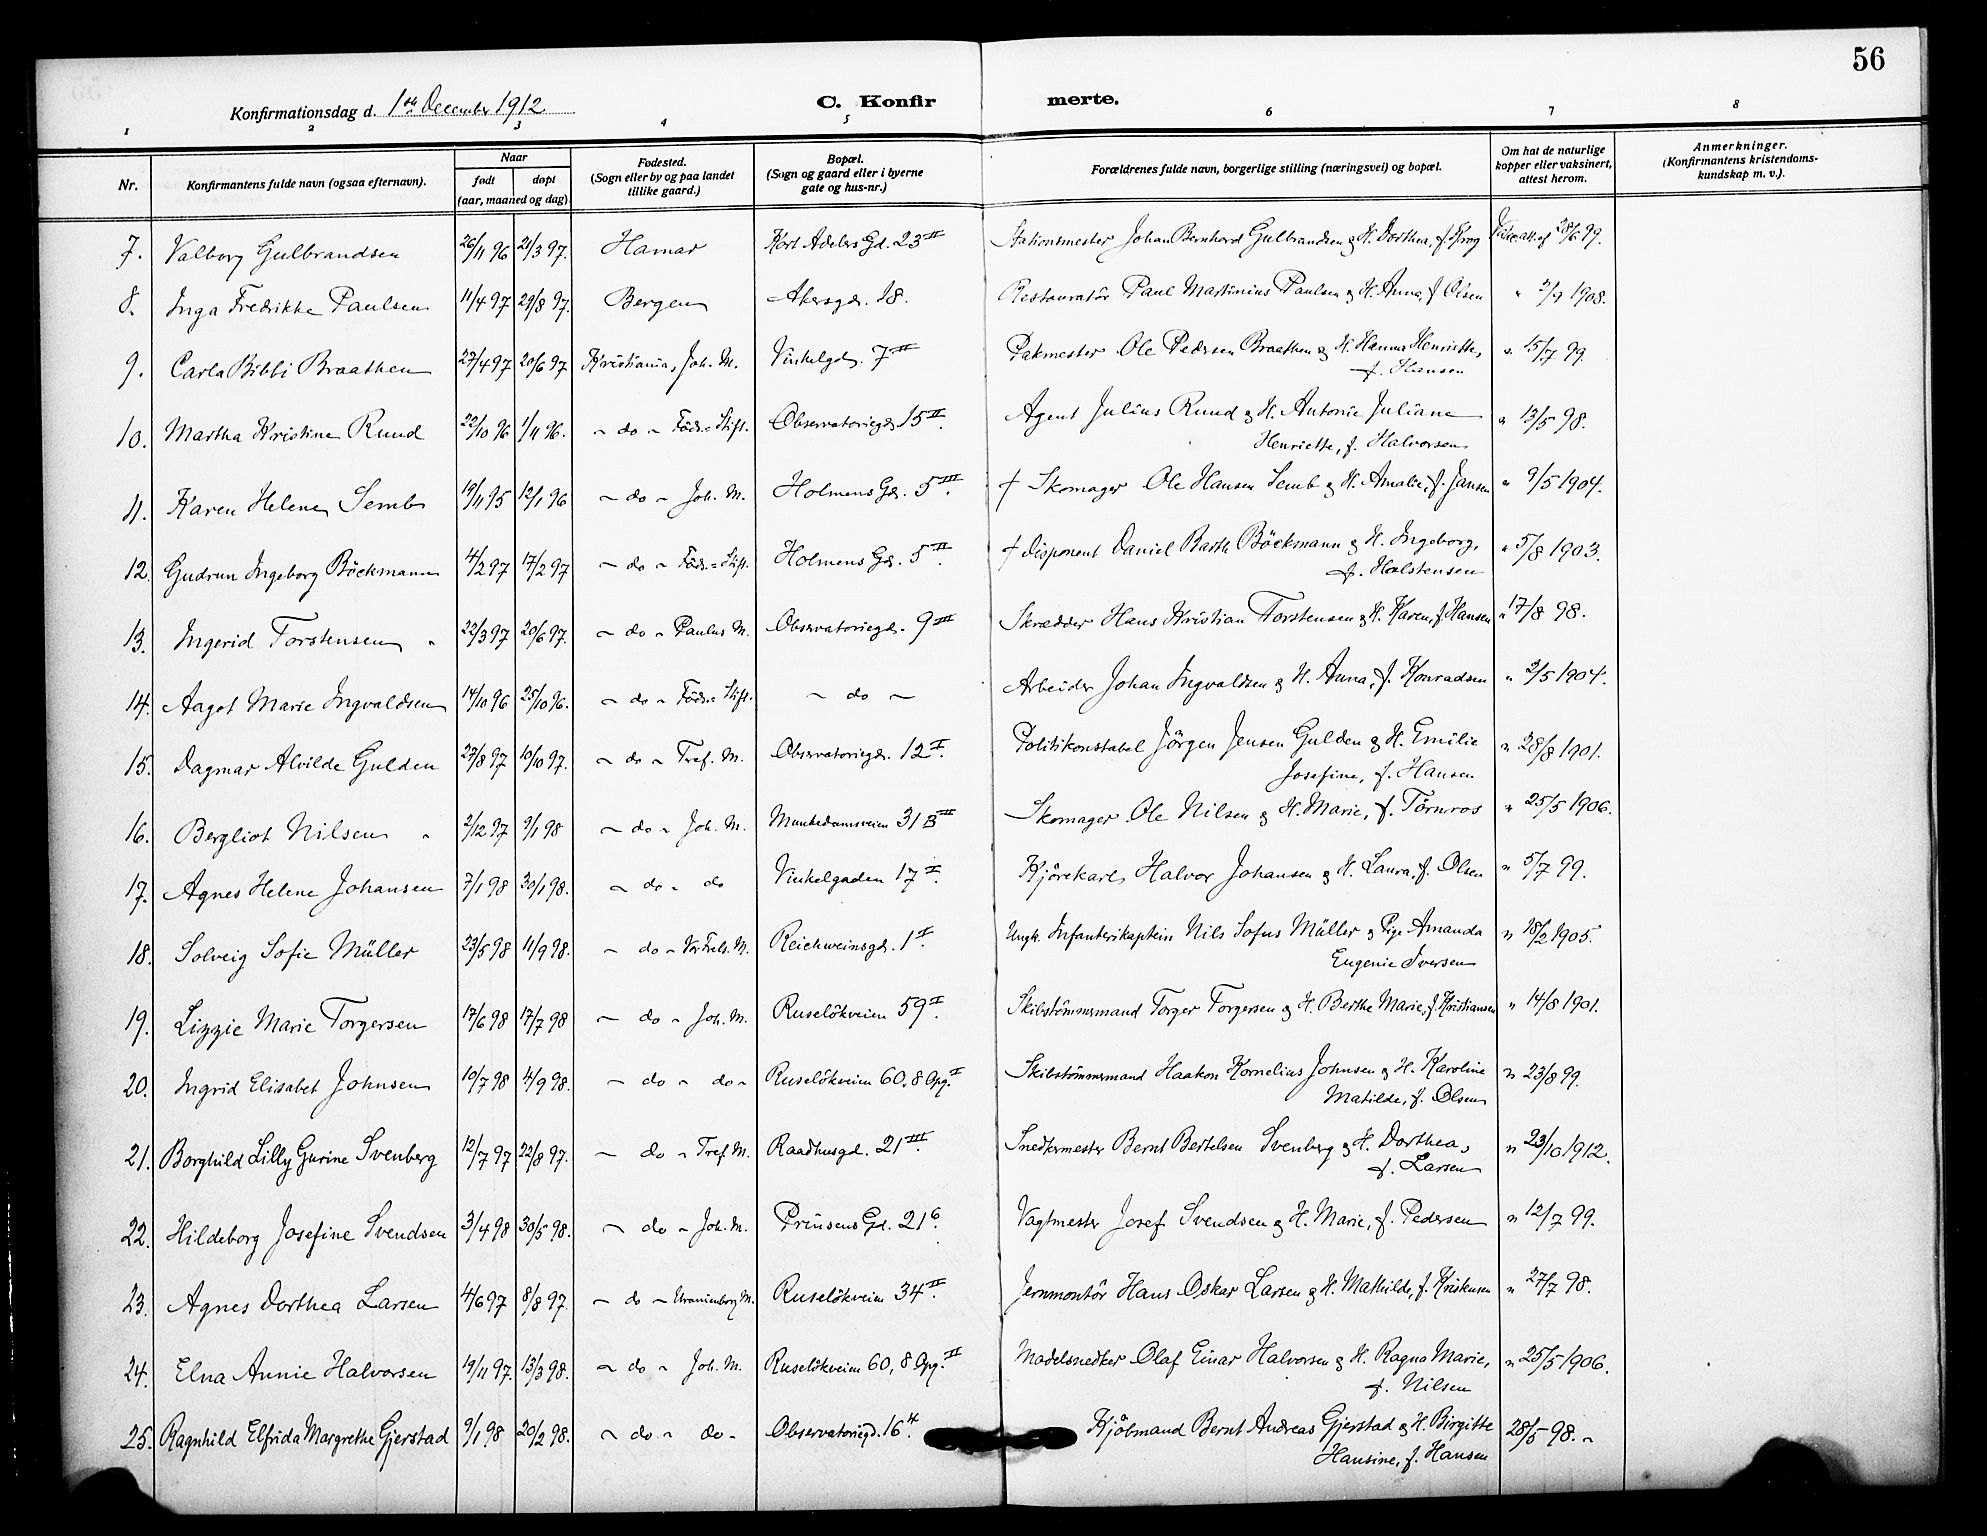 56
Konfirmationsdag d. 1ste December 1912
C. Konfirmerte.
1 2 3 4 5 6 7 8
Nr. Konfirmantens fulde navn (ogsaa efternavn). Naar født døpt (aar, maaned og dag). Fødested. (Sogn eller by og paa landet tillike gaard.) Bopæl. (Sogn og gaard eller i byerne gate og hus-nr.) Forældrenes fulde navn, borgerlige stilling (næringsvei) og bopæl. Om hat de naturlige kopper eller vaksinert, attest herom. Anmerkninger. (Konfirmantens kristendoms-kundskap m. v.).
7. Valborg Gulbrandsen 26/11 96 21/3 97. Hamar Kort Adelers Gd. 23 II Stationsmester Johan Bernhard Gulbrandsen & H. Dorthea, f. Krog Vakc.att. af 28/6 99.
8. Inga Fredrikke Paulsen 11/4 97 29/8 97. Bergen Akersgd. 18. Restauratör Paul Martinius Paulsen & H. Anna, f. Olsen " 2/9 1908.
9. Carla Bibbi Braathen 27/4 97 20/6 97. Kristiania, Joh. M. Vinkelgd. 7 III Pakmester Ole Pedersen Braathen & H. Hanna Henriette, " 15/7 99.
f. Hansen
10. Martha Kristine Ruud 22/10 96 1/11 96. - do - Föds.=Stift. Observatoriegd. 15 II. Agent Julius Ruud & H. Antonie Juliane " 13/5 98.
Henriette, f. Halvorsen
11. Karen Helene Semb 19/11 95 12/1 96 - do - Joh. M. Holmens Gd. 5 III. † Skomager Ole Hansen Semb & H. Amalie, f. Jansen " 9/5 1904.
12. Gudrun Ingeborg Böckmann 4/2 97 17/2 97 - do - Föds.=Stift. Holmens Gd. 5 II. † Disponent Daniel Barth Böckmann & H. Ingeborg, " 5/8 1903.
f. Halstensen
13. Ingerid Torstensen " 22/3 97 20/6 97. - do - Paulus M. Observatoriegd. 9 III Skrædder Hans Kristian Torstensen & H. Karen, f. Hansen " 17/8 98.
14. Aagot Marie Ingvaldsen 14/10 96 25/10 96. - do - Föds.= Stift. - do - Arbeider Johan Ingvaldsen & H. Anna, f. Konradsen " 2/5 1904.
15. Dagmar Alvilde Gulden 27/8 97 10/10 97. - do - Tref. M. Observatoriegd. 12 I. Politikonstabel Jörgen Jensen Gulden & H. Emilie " 28/8 1901.
Josefine, f. Hansen
16. Bergliot Nilsen " 2/12 97 9/1 98 - do - Joh. M. Munkedamsveien 31 B III Skomager Ole Nilsen & H. Marie, f. Törnros " 25/5 1906.
17. Agnes Helene Johansen 7/1 98 30/1 98. - do - do Vinkelgaden 17 I. Kjörekarl Halvor Johansen & H. Laura, f. Olsen " 5/7 99.
18. Solveig Sofie Müller 23/5 98 11/9 98. - do - Vor Frels. M. Reichweinsgd. 1 I. Ungk. Infanterikaptein Nils Sofus Müller & Pige Amanda " 18/2 1905.
Eugenie Iversen
19. Lizzie Marie Torgersen 17/6 98 17/7 98 - do - Joh. M. Ruselökveien 59 I. Skibstömmermand Torger Torgersen & H. Berthe Marie, f. Kristiansen " 14/8 1901.
20. Ingrid Elisabet Johnsen 10/7 98 4/9 98. - do - do - Ruselökveien 60, 8 Opg. I Skibstömmermand Haakon Kornelius Johnsen & H. Karoline " 23/8 99.
Matilde, f. Olsen
21. Borghild Lilly Gurine Svenberg 12/7 97 22/8 97. - do - Tref M. Raadhusgd. 21 III. Snedkermester Bernt Bertelsen Svenberg & H. Dorthea, " 23/10 1912.
f. Larsen
22. Hildeborg Josefine Svendsen 3/4 98 30/5 98. - do - Joh. M. Prinsens Gd. 21 6. Vagtmester Josef Svendsen & H. Marie, f. Pedersen " 12/7 99.
23. Agnes Dorthea Larsen 4/6 97 8/8 97. - do - Uranienborg M. Ruselökveien 34 II. Jernmontör Hans Oskar Larsen & H. Mathilde, f. Kristensen " 27/7 98.
24. Elna Annie Halvorsen 19/11 97. 13/3 98. - do - Joh. M. Ruselökveien 60, 8 Opg. II Modelsnedker Olaf Einar Halvorsen & H. Ragna Marie, " 25/5 1906.
f. Nilsen
25. Ragnhild Elfrida Margrethe Gjerstad 9/1 98 20/2 98. - do - do - Observatoriegd. 16 4. Kjöbmand Bernt Andreas Gjerstad & H. Birgitte 28/5 98. -
Hansine, f. Hansen